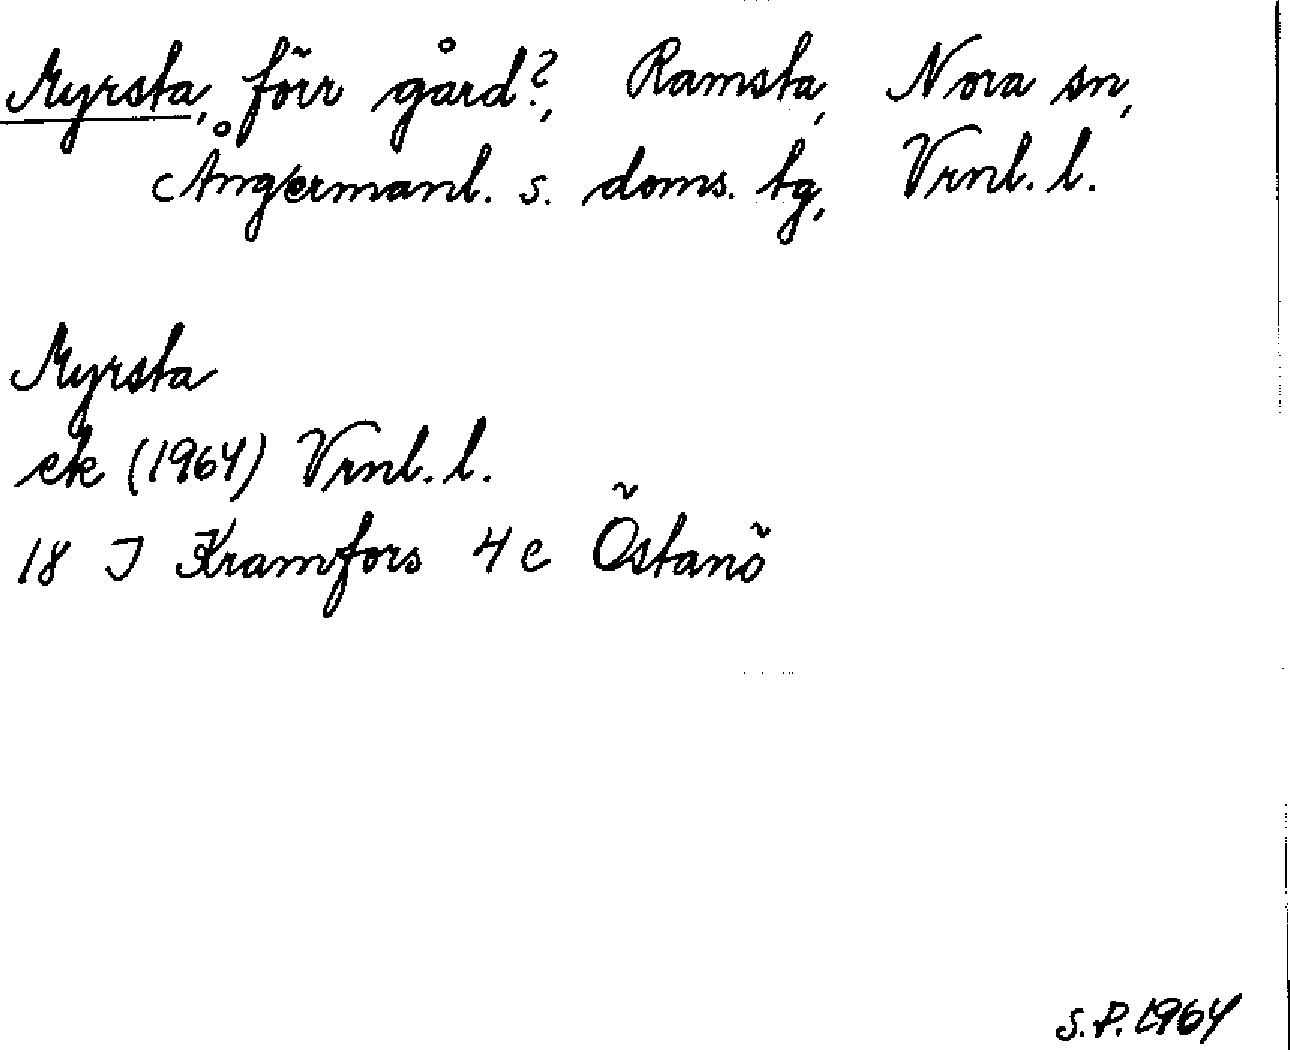 Myrsta, förr gård?, Ramsta, Nora sn,
Ångermanl. s. doms. tg, Vrnl. l.
Myrsta
ek (1964) Vrnl. l.
18 J Kramfors 4 c Östanö
S.P. 1964